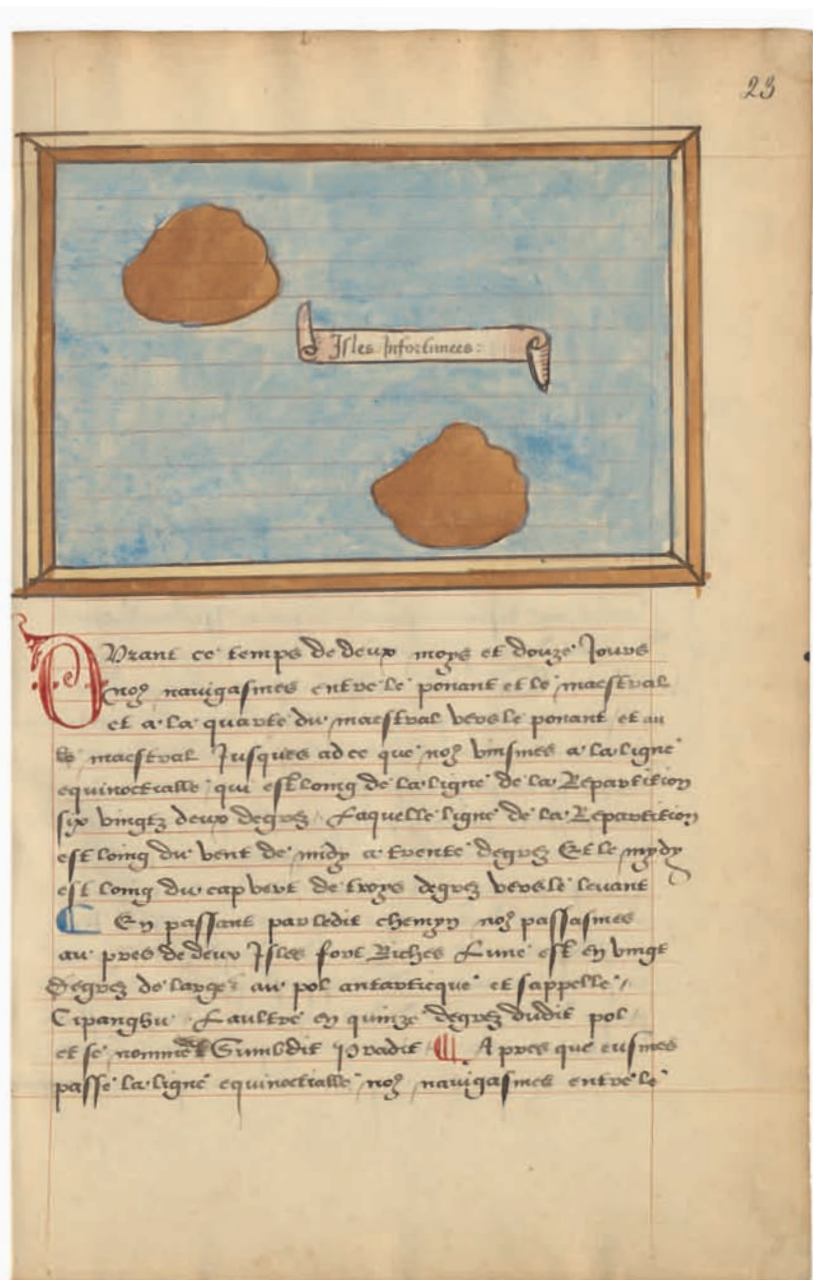 23
Isles Infortunees:
DVrant ce temps de deux moys et douze Jours
noꝰ navigasmes entre le ponant et le maestral
et a la quarte du maestral vers le ponant et au
le maestral Jusques ad ce que noꝰ vinsmes a la ligne
equinoctialle qui est loing de la ligne de la Repartition
six vingtz deux degrez Laquelle ligne de la Repartition
est loing du vent de midy a trente degrez Et le mydy
est loing du cap vert de troys degrez vers le levant
En passant par ledit chemyn noꝰ passasmes
au pres de deux Isles fort Riches Lune est en vingt
degrez de large au pol antarticque et sappelle /
Cipanghu Laultre en quinze degrez dudit pol
et se nomme Sumbdit Pradit Apres que eusmes
passe la ligne equinoctialle noꝰ navigasmes entre le